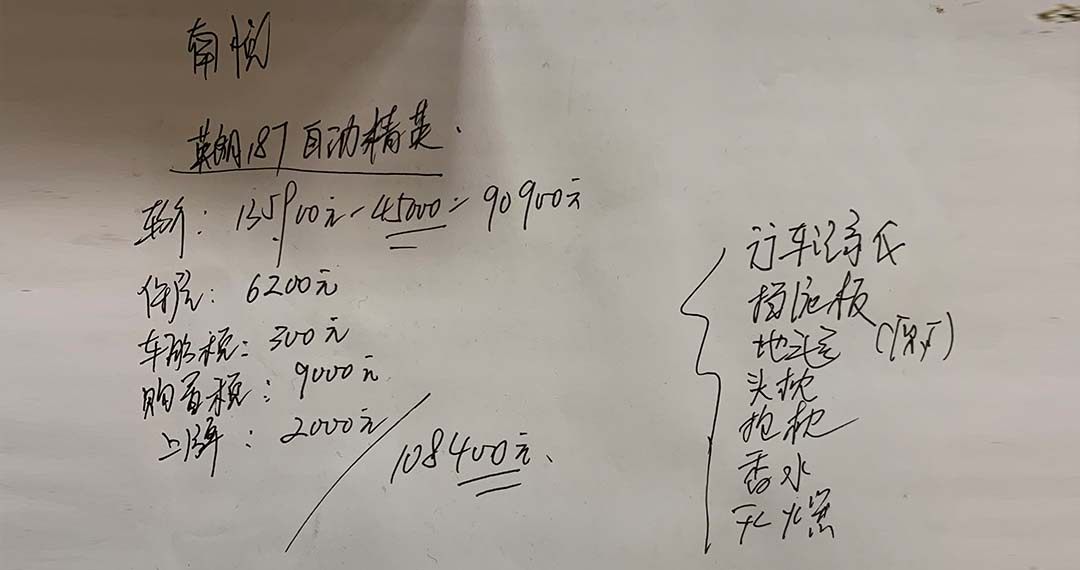 南悦
英朗18T自动精英.
车价: 135900元-45000=90900元
保险: 6200元
车船税: 300元
购置税: 9000元
上牌: 2000元
108400元.
行车记录仪
挡泥板
地毯 (原厂)
头枕
抱枕
香水
灭火器